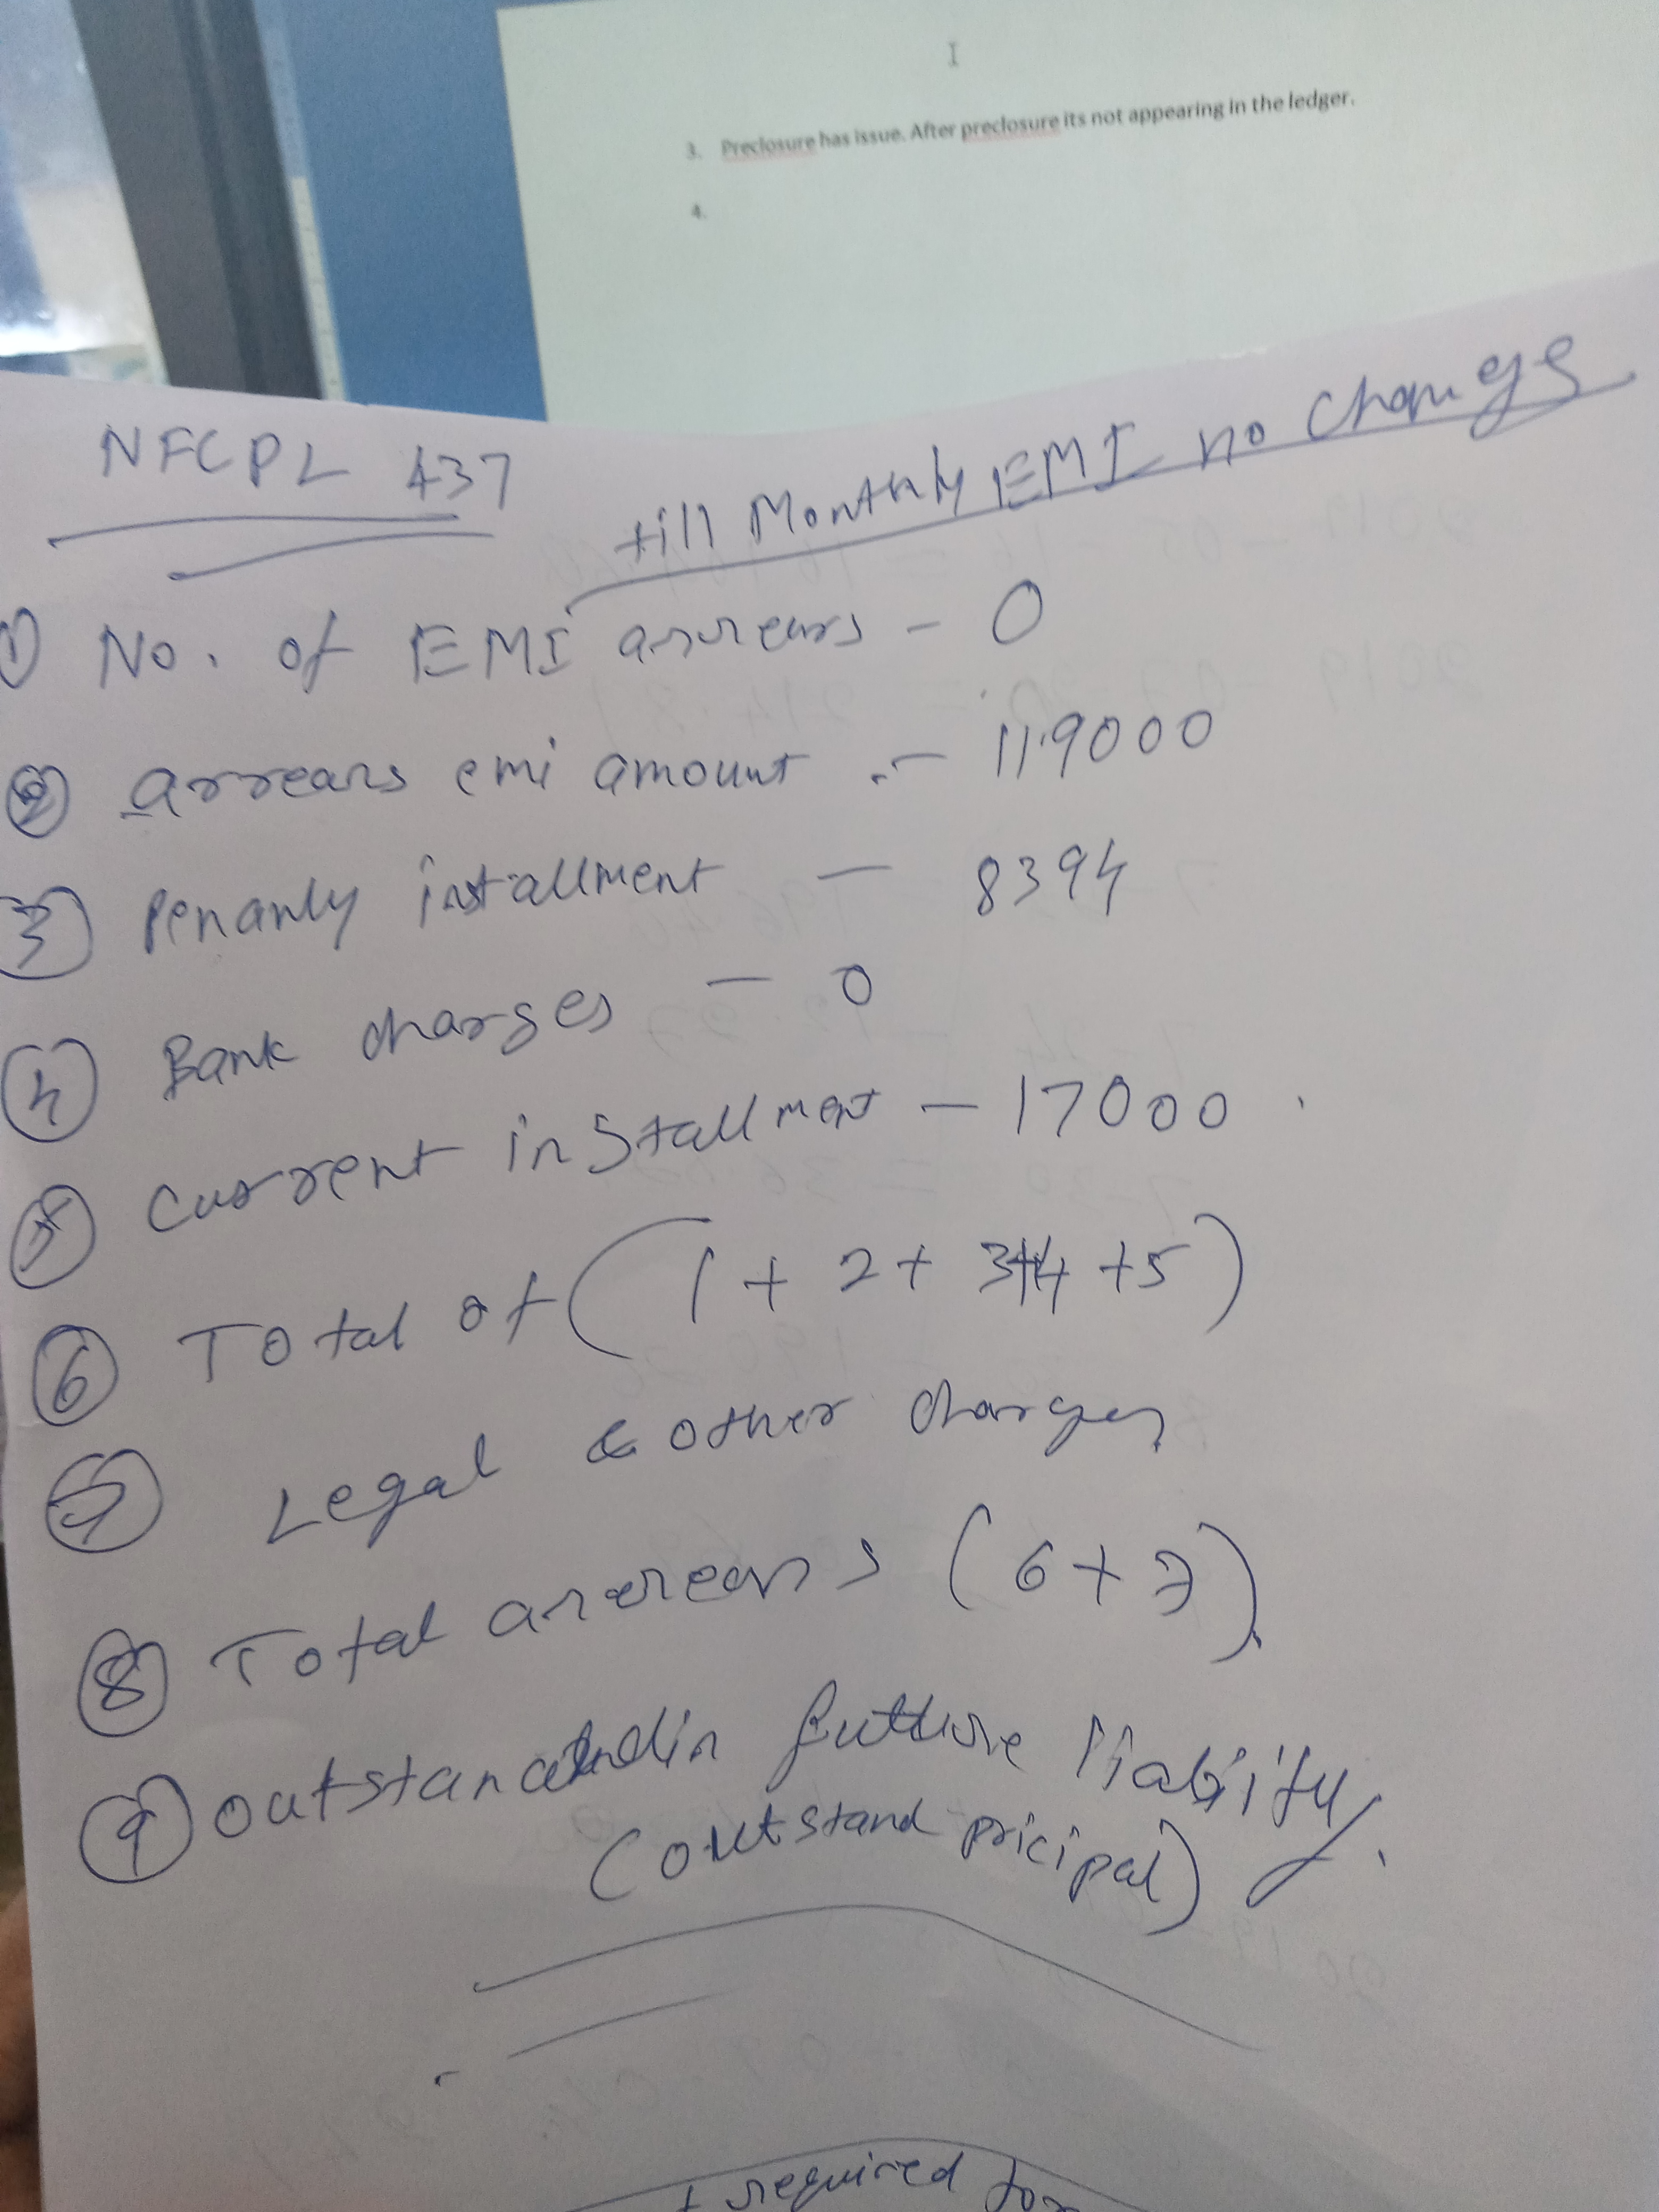 3. Preclosure has issue. After preclosure its not appearing in the ledger.
4.
NFCPL 437
till Monthly EMI no change
1 No. of EMI arrears - 0
2 arrears emi amount - 119000
3 Penanly installment - 8394
4 Bank charges - 0
5 Current installment - 17000
6 Total of (1 + 2 + 3+4 +5)
7 Legal & other charges
8 Total arrears (6+7)
9 outstandin future liability
(outstand pricipal)
required for